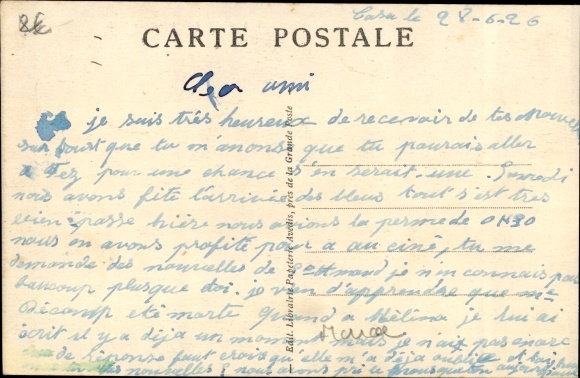 Casa le 28-6-26
CARTE POSTALE
Cher ami
je suis très heureux de recevoir de tes nouvelles
surtout que tu m'anonce que tu pourais aller
a Fez pour une chance s'en serait une. Samedi
nous avons fété l'arrivée des bleus tout s'est tres
bien passé hière nous avions la perme de 0H30
nous en avons profité pour a au ciné, tu me
demande des nouvelles de St Amand je n'en connais pas
baucoup plus que toi. je vien d'apprendre que
été morte Quand a Hélèna je lui ai
écrit il y a déja un moment mais je n'ait pas encore
de réponse faut croire qu'elle m'a déja oublié et toi
nouvelles nous avons pris
Maroc
Edit. Librairie Papeterie Avédis, près de la Grande Poste